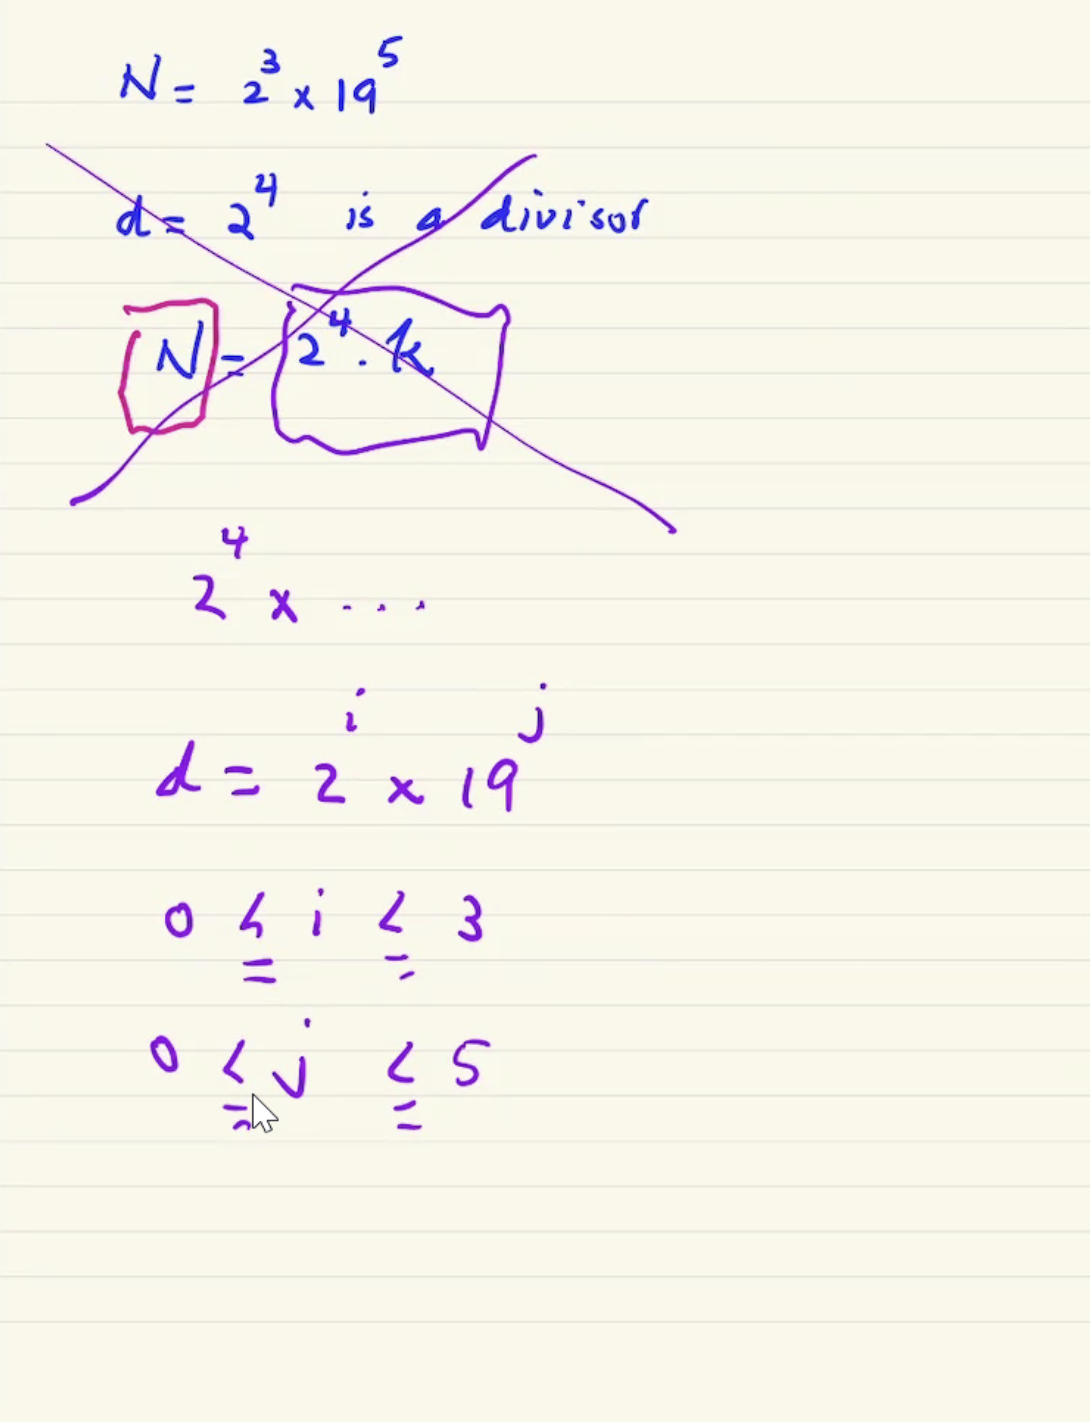 N = 2³ x 19⁵
d = 2⁴ is a divisor
N = 2⁴ . k
2⁴ x ...
d = 2ⁱ x 19ʲ
0 ≤ i ≤ 3
0 ≤ j ≤ 5